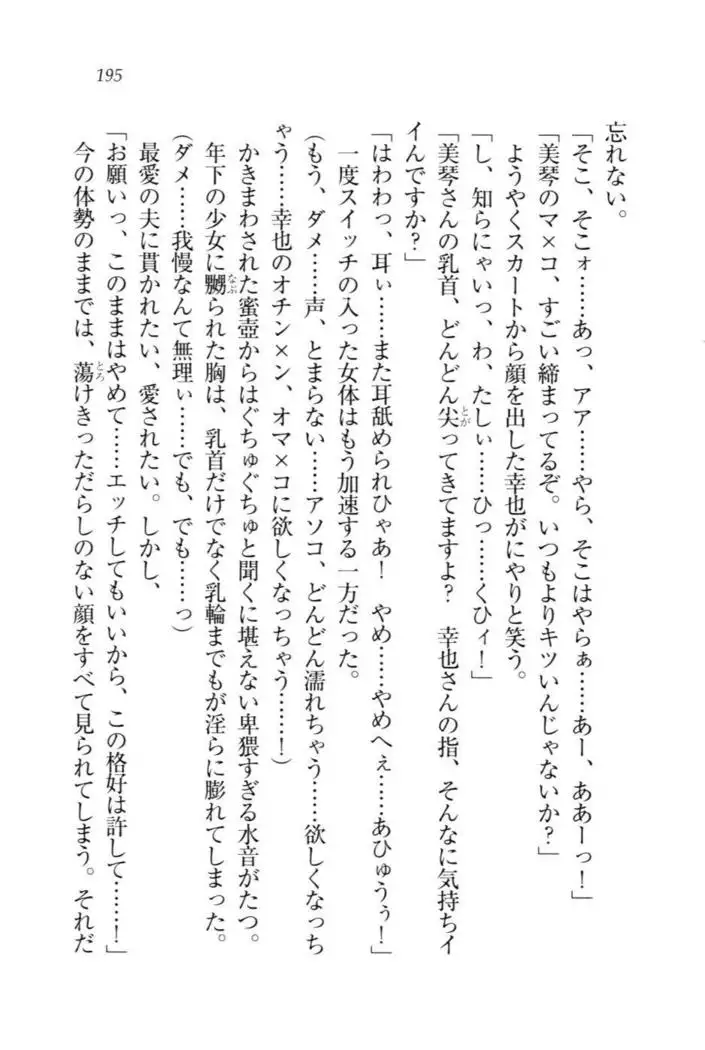 195
忘れない。
「そこ、そこォ……あっ、アア……やら、そこはやらぁ……あー、ああーっ!」
「美琴のマ×コ、すごい締まってるぞ。いつもよりキツいんじゃないか?」
ようやくスカートから顔を出した幸也がにやりと笑う。
「し、知らにゃいっ、わ、たしぃ……ひっ……くひィ!」
「美琴さんの乳首、どんどん尖ってきてますよ? 幸也さんの指、そんなに気持ちイ
イんですか?」
「はわわっ、耳ぃ……また耳舐められひゃあ! やめ……やめへぇ……あひゅうぅ!」
一度スイッチの入った女体はもう加速する一方だった。
(もう、ダメ……声、とまらない……アソコ、どんどん濡れちゃう……欲しくなっち
ゃう……幸也のオチン×ン、オマ×コに欲しくなっちゃう……!)
かきまわされた蜜壺からはぐちゅぐちゅと聞くに堪えない卑猥すぎる水音がたつ。
年下の少女に嬲られた胸は、乳首だけでなく乳輪までもが淫らに膨れてしまった。
(ダメ……我慢なんて無理ぃ……でも、でも……っ)
最愛の夫に貫かれたい、愛されたい。しかし、
「お願いっ、このままはやめて……エッチしてもいいから、この格好は許して……!」
今の体勢のままでは、蕩けきっただらしのない顔をすべて見られてしまう。それだ